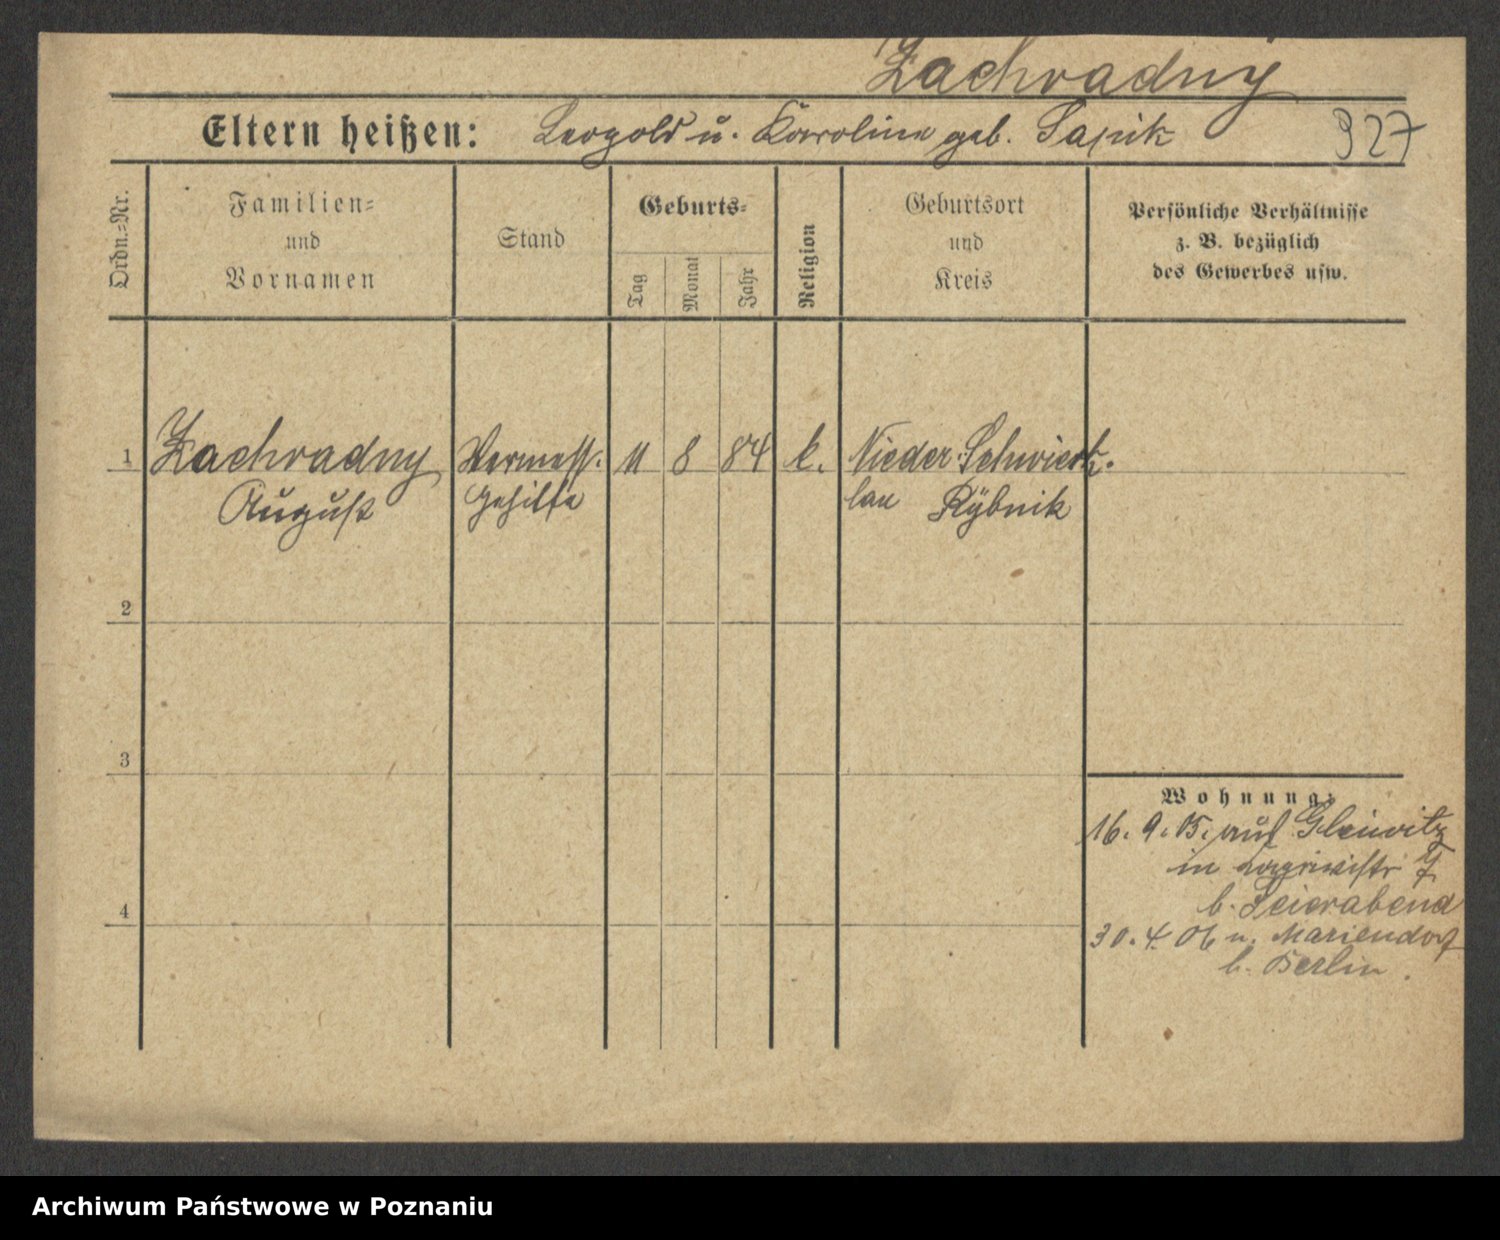 Zachradny
Eltern heißen: Leopold u. Karoline geb. Sapik
927
Ordn.=Nr.
Familien=
und
Vornamen
Stand
Geburts=
Tag
Monat
Jahr
Religion
Geburtsort
und
Kreis
Persönliche Verhältnisse
z. B. bezüglich
des Gewerbes usw.
1 Zachradny Vermess. 11 8 84 k. Nieder-Schwierk-
August gehilfe lau Rybnik
2
3
4
Wohnung:
16. 9. 05. aus Gleiwitz
in
b. Feierabend
30. 4. 06 n. Mariendorf
b. Berlin.
Archiwum Państwowe w Poznaniu